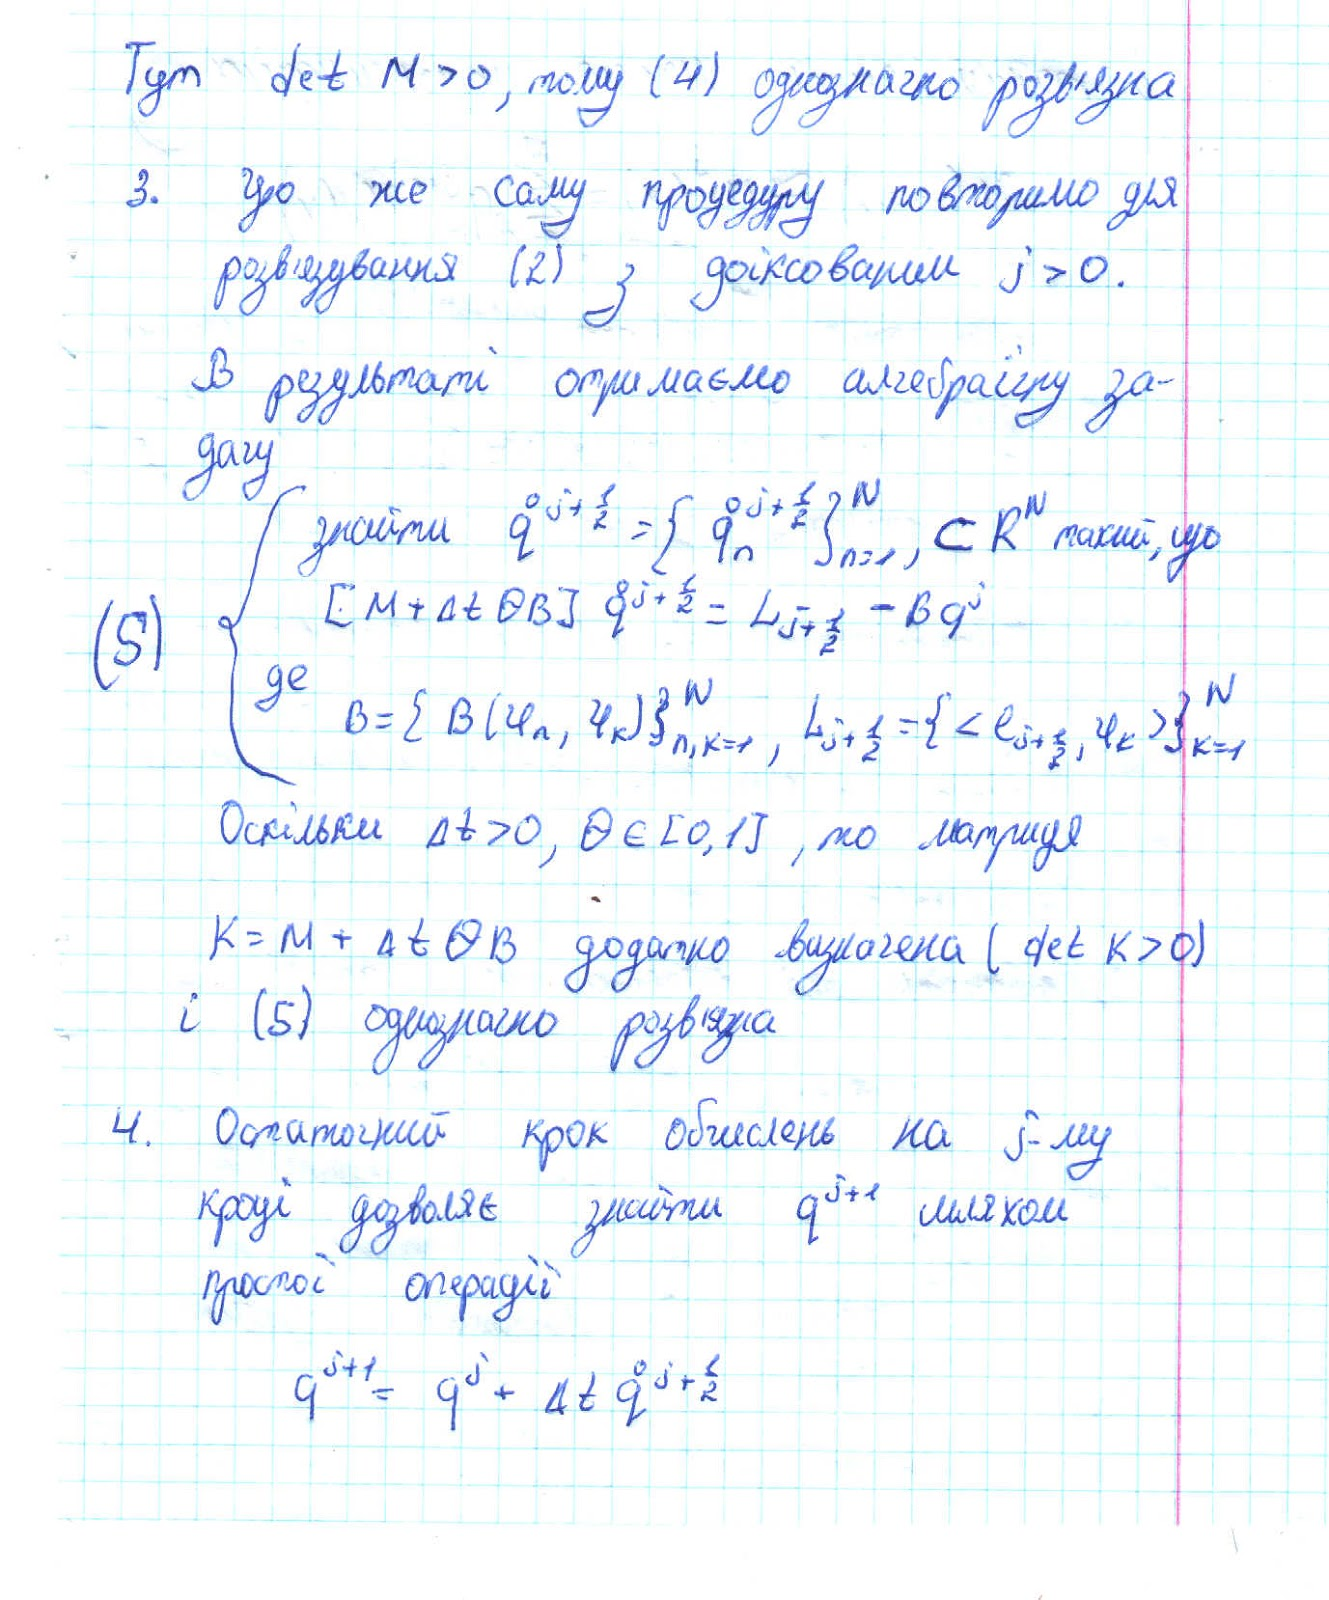 Тут det M > 0, тому (4) однозначно розв'язна
3. Цю же саму процедуру повторимо для
розв'язування (2) з фіксованим j > 0.
В результаті отримаємо алгебраїчну за-
дачу
знайти q̊^{j+1/2} = { q̊_n^{j+1/2} }_{n=1}^N, ⊂ R^N такий, що
[M + Δt θB] q̊^{j+1/2} = L_{j+1/2} - Bq^j
(5)
де
B = { B(φ_n, φ_k) }_{n,k=1}^N, L_{j+1/2} = { < l_{j+1/2}, φ_k > }_{k=1}^N
Оскільки Δt > 0, θ ∈ [0,1], то матриця
K = M + Δt θB додатно визначена ( det K > 0)
і (5) однозначно розв'язна
4. Остаточний крок обчислень на j-му
кроці дозволяє знайти q^{j+1} шляхом
простої операції
q^{j+1} = q^j + Δt q̊^{j+1/2}